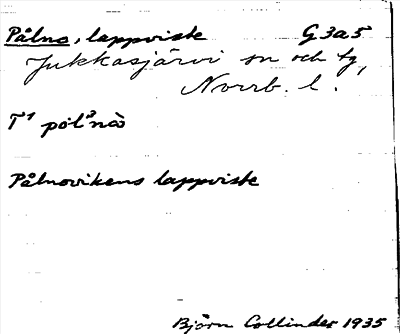 Pålno, lappviste G3a5
Jukkasjärvi sn och tg,
Norrb. l.
Pålnovikens lappviste
Björn Collinder 1935